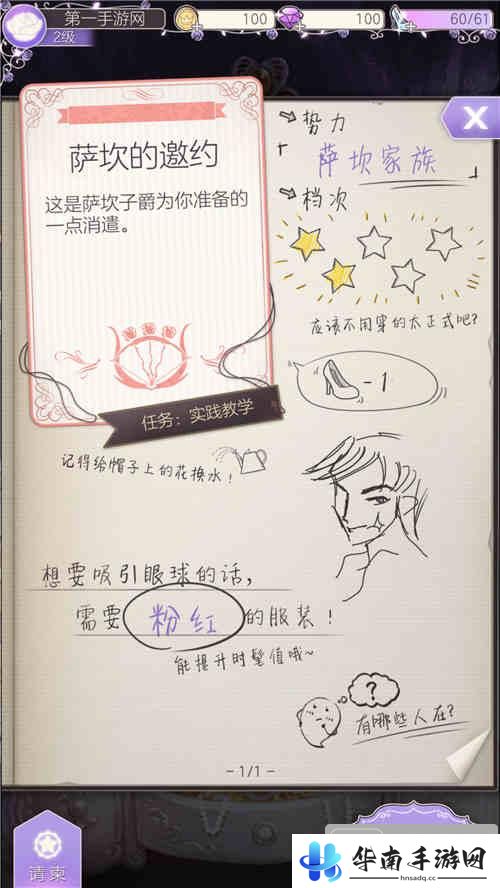 第一手游网
100
100
60/61
2级
萨坎的邀约
这是萨坎子爵为你准备的
一点消遣。
任务：实践教学
势力
「萨坎家族」
档次
应该不用穿的太正式吧?
-1
记得给帽子上的花换水!
想要吸引眼球的话,
需要 粉红 的服装!
能提升时髦值哦~
?
有哪些人在?
-1/1-
请柬
华南手游网
hnsadq.cc